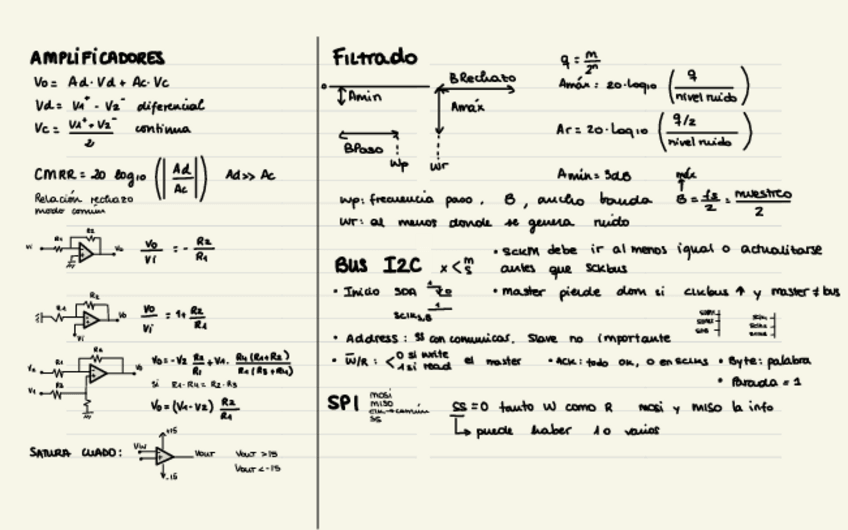 AMPLIFICADORES
Vo = Ad · Vd + Ac · Vc
Vd = V1⁺ - V2⁻ diferencial
Vc = (V1⁺ + V2⁻) / 2 continua
CMRR = 20 log10 (|Ad / Ac|) Ad >> Ac
Relación rechazo
modo comun
Vi R1 R2 Vo Vo / Vi = - R2 / R1
R1 R2 Vo Vi Vo / Vi = 1 + R2 / R1
R1 R2 R3 Vo Vo = -V2 R2 / R1 + V1 · R4 (R1+R2) / R1 (R3+R4)
Si R1·R4 = R2·R3
Vo = (V1 - V2) R2 / R1
SATURA CUADO: Vin +15 -15 Vout Vout > 15
Vout < -15
Filtrado
Amin BRechazo
Amáx
BPaso
Wp Wr
q = m / 2ⁿ
Amáx = 20·Log10 (q / nivel ruido)
Ar = 20·Log10 (q/2 / nivel ruido)
Amin = 3dB
wp: frecuencia paso. B, ancho banda máx B = fs / 2 = muestreo / 2
wr: al menos donde se genera ruido
BUS I2C x < m s
• SCKM debe ir al menos igual o actualizarse
antes que SCKbus
• Inicio SDA 1 0
SCLM,B 1
• master pierde dom si clkbus ↑ y master ≠ bus
• Address: SS con comunicar. Slave no importante
• W̅/R: < 0 si write 1 si read el master • ACK: todo ok, 0 en SCLMS • Byte: palabra
• Parada = 1
SPI
mosi
miso
clk → común
SS
SS = 0 tanto W como R mosi y miso la info
↳ puede haber 1 o varios